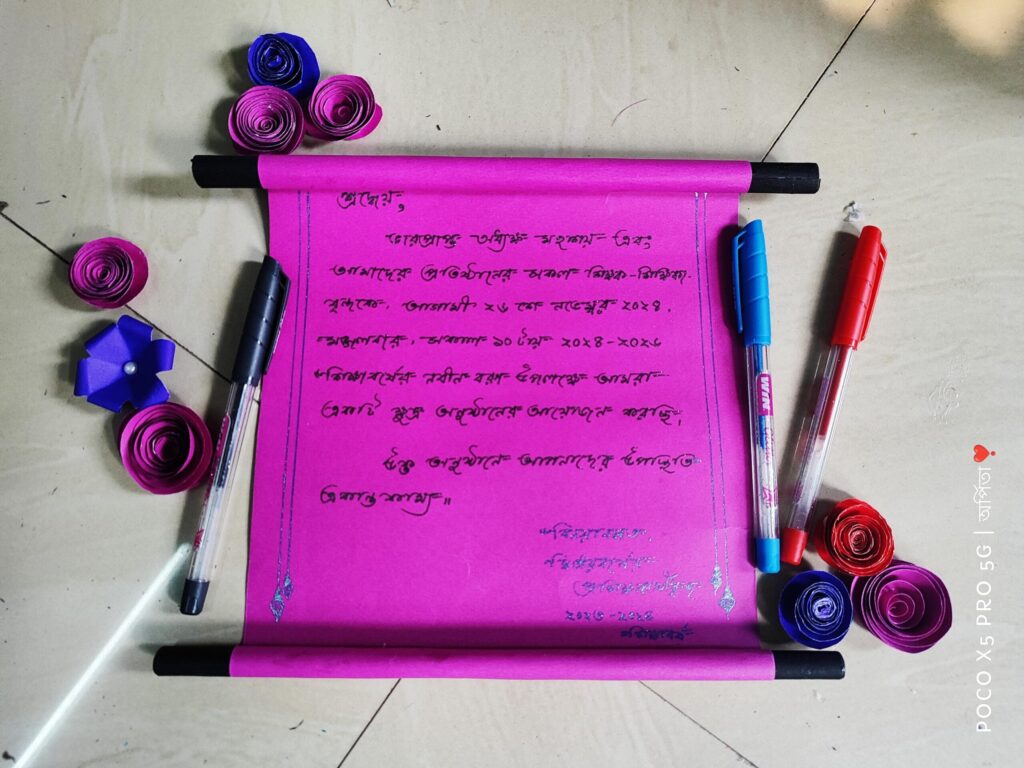 শ্রদ্ধেয়,
ভারপ্রাপ্ত অধ্যক্ষ মহাশয় এবং
আমাদের প্রতিষ্ঠানের সকল শিক্ষক-শিক্ষিকা
বৃন্দকে, আগামী ২৬ শে নভেম্বর ২০২৪,
মঙ্গলবার, সকাল ১০ টায় ২০২৪-২০২৬
শিক্ষাবর্ষের নবীন বরণ উপলক্ষে আমরা
একটি ক্ষুদ্র অনুষ্ঠানের আয়োজন করছি,
উক্ত অনুষ্ঠানে আপনাদের উপস্থিতি
একান্ত কাম্য॥
বিনয়াবনত,
২০২৩-২০২৫
শিক্ষাবর্ষ
WIN
POCO X5 PRO 5G | অর্পিতা